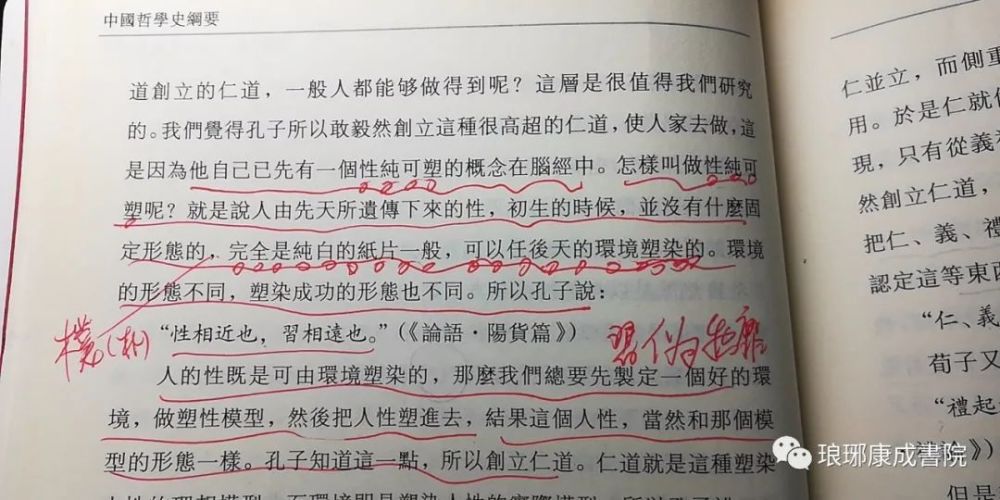 中國哲學史綱要
道創立的仁道，一般人都能够做得到呢？這層是很值得我們研究
的。我們覺得孔子所以敢毅然創立這種很高超的仁道，使人家去做，這
是因為他自己已先有一個性純可塑的概念在腦經中。怎樣叫做性純可
塑呢？就是說人由先天所遺傳下來的性，初生的時候，並沒有什麼固
定形態的，完全是純白的紙片一般，可以任後天的環境塑染的。環境
的形態不同，塑染成功的形態也不同。所以孔子說：
“性相近也，習相遠也。”（《論語·陽貨篇》）
樸（朴）
習
人的性既是可由環境塑染的，那麼我們總要先製定一個好的環
境，做塑性模型，然後把人性塑進去，結果這個人性，當然和那個模
型的形態一樣。孔子知道這一點，所以創立仁道。仁道就是這種塑染
仁並立，而側重
用。於是仁就
現，只有從義
然創立仁道，
把仁、義、禮
認定這等東西
“仁、義
荀子又
“禮起
但是
琅琊康成書院